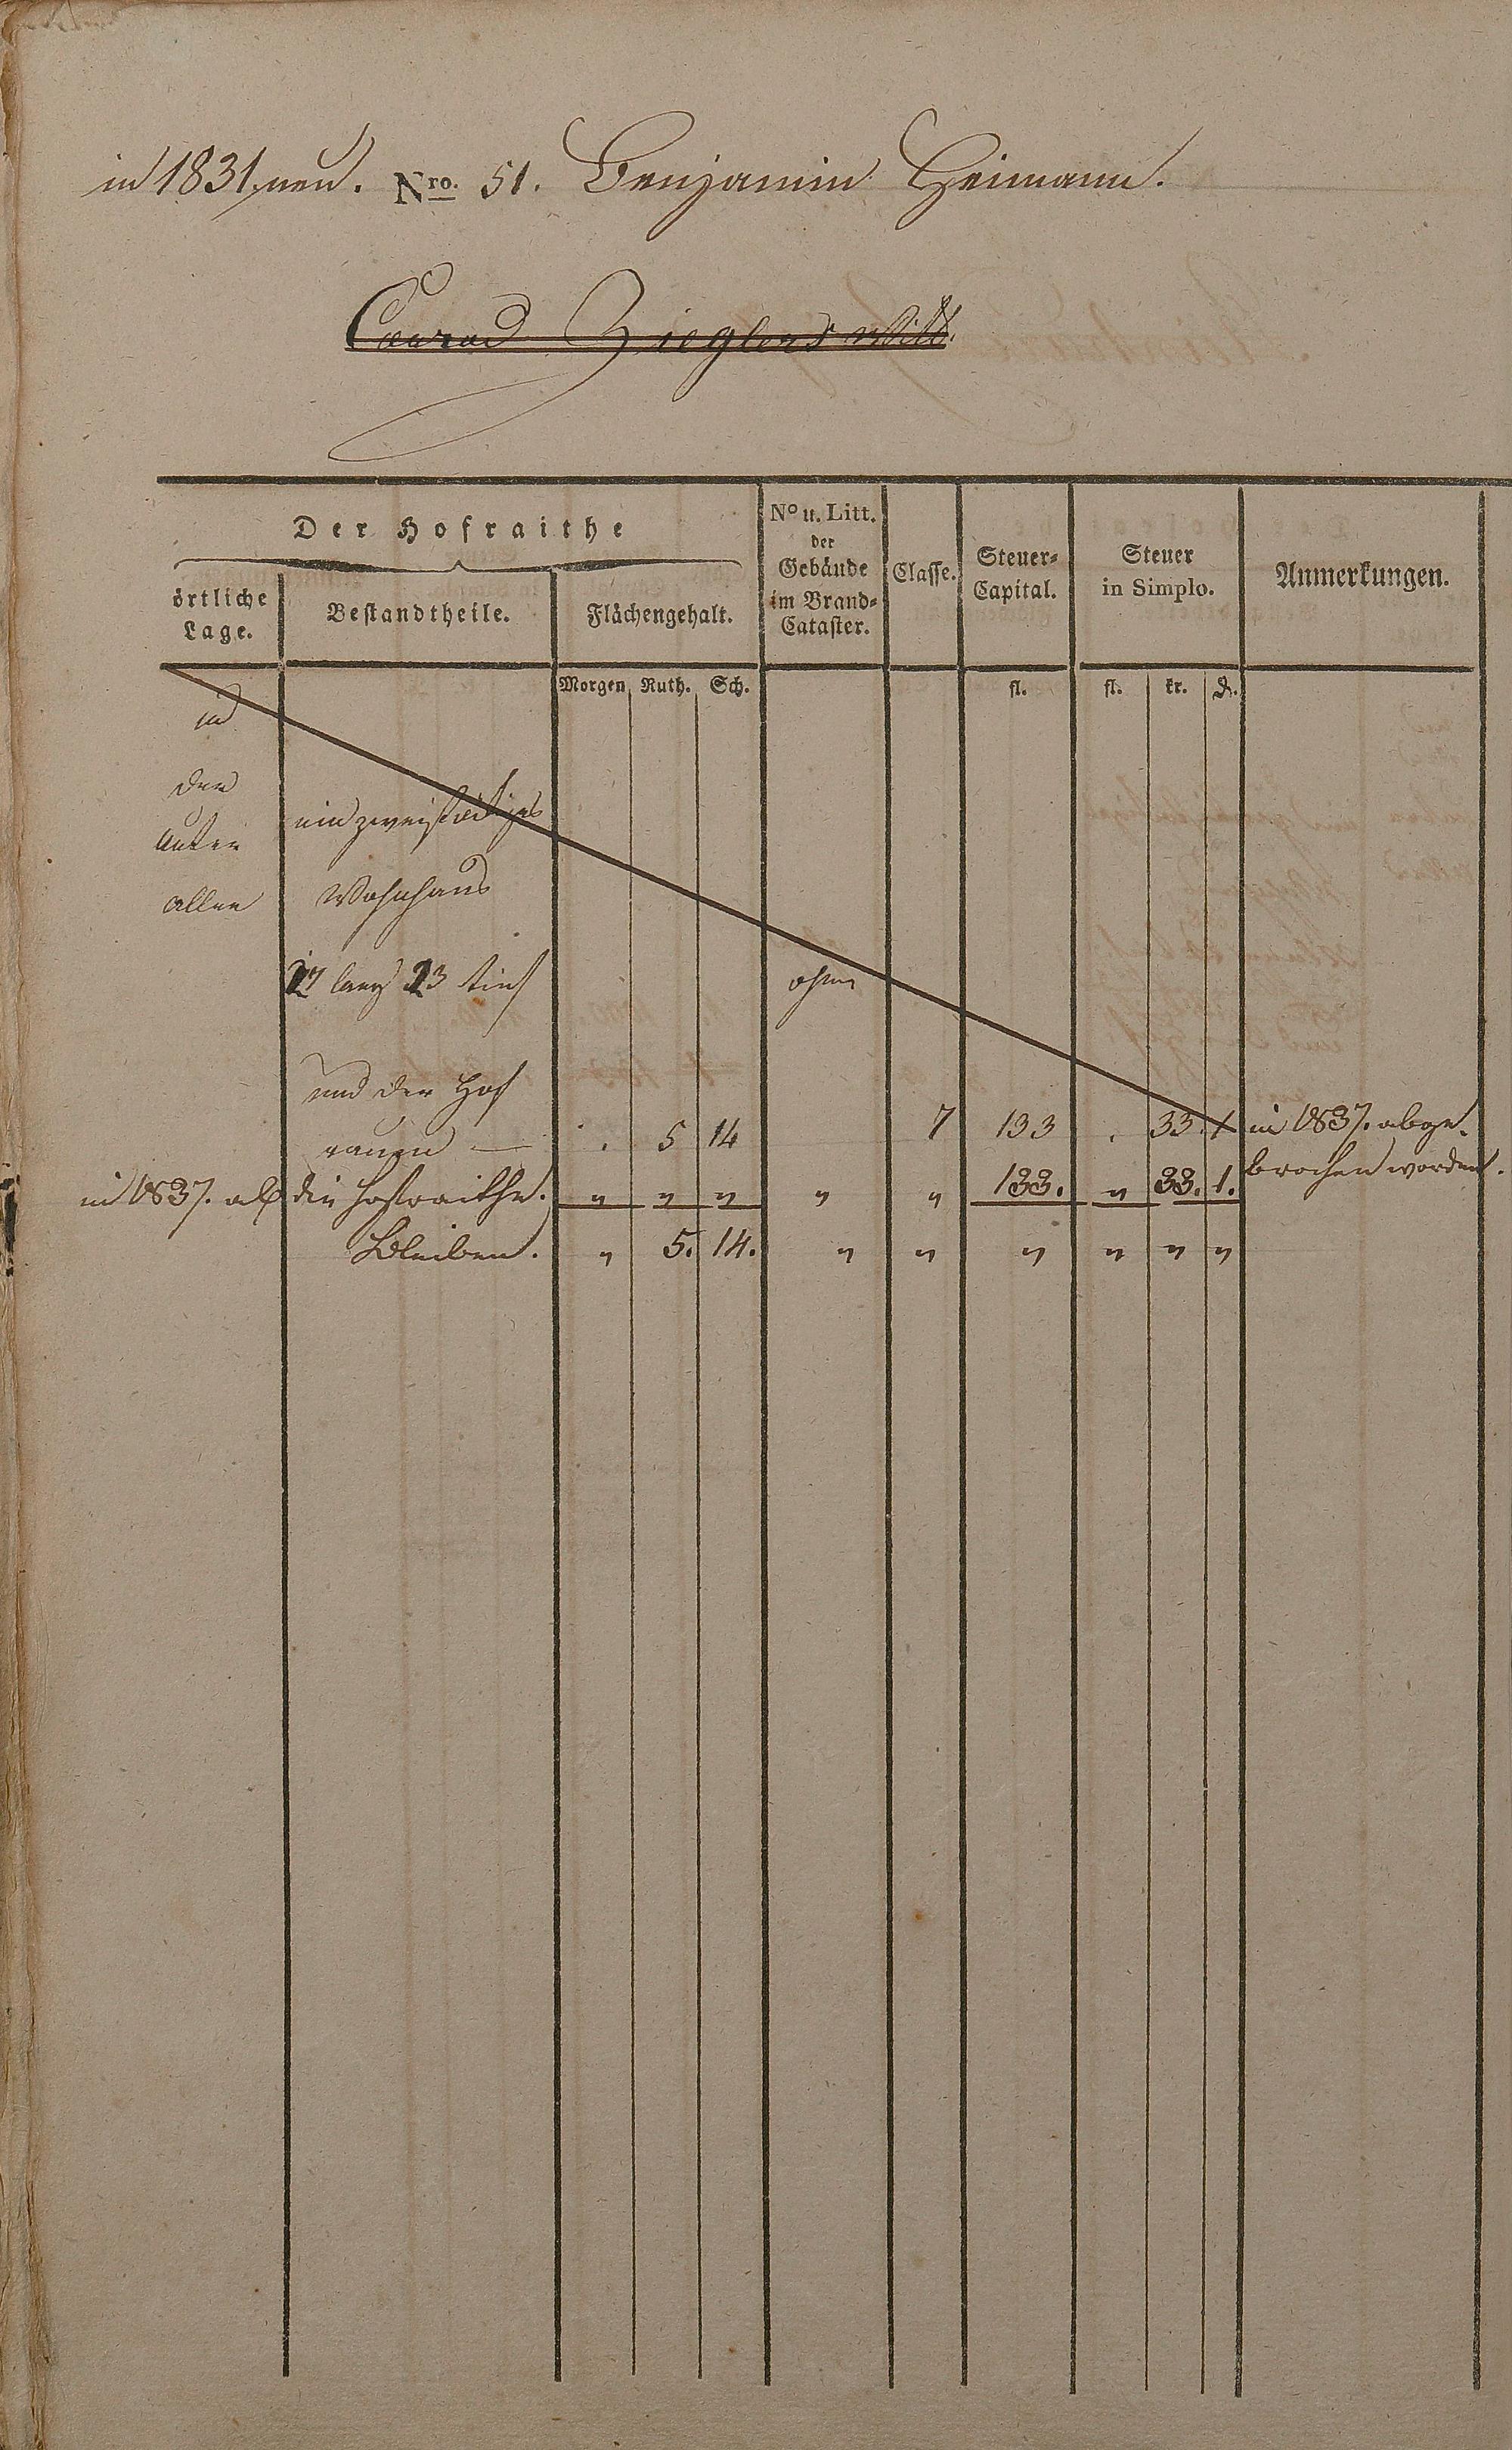 in 1831 neu. Nro. 51. Benjamin Heimann.
Conrad Zieglers Witt.
Der Hofraithe
örtliche
Lage.
Bestandtheile.
Flächengehalt.
No u. Litt.
der
Gebäude
im Brand-
Cataster.
Classe.
Steuer-
Capital.
Steuer
in Simplo.
Anmerkungen.
Morgen Ruth. Sch. fl. fl. kr. d.
in
der
unter ein zweistöckiges
allee Wohnhaus
27 lang 23 tief ohne
und der Hof
raum — . 5 14 7 133 . 33. 1 in 1837. abge-
brochen worden.
in 1837. ab die Hofraithe. " " " " " 133. " 33. 1.
Bleiben. " 5. 14. " " " " " "